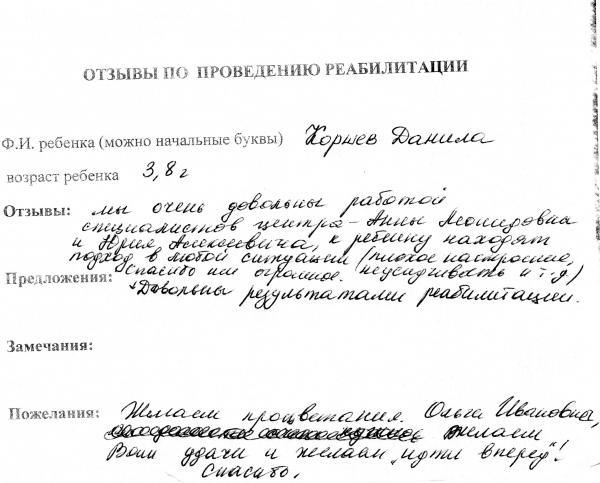 ОТЗЫВЫ ПО ПРОВЕДЕНИЮ РЕАБИЛИТАЦИИ
Ф.И. ребенка (можно начальные буквы) Коршев Данила
возраст ребенка 3,8 г
Отзывы: мы очень довольны работой
специалистов центра - Анны Леонидовны
и Юрия Алексеевича, к ребенку находят
подход в любой ситуации (плохое настроение,
неусидчивость и т.д.)
Спасибо им огромное.
Предложения:
+Довольны результатами реабилитации.
Замечания:
Пожелания: Желаем процветания. Ольга Ивановна,
желаем
Вам удачи и желаем "идти вперед"!
Спасибо.